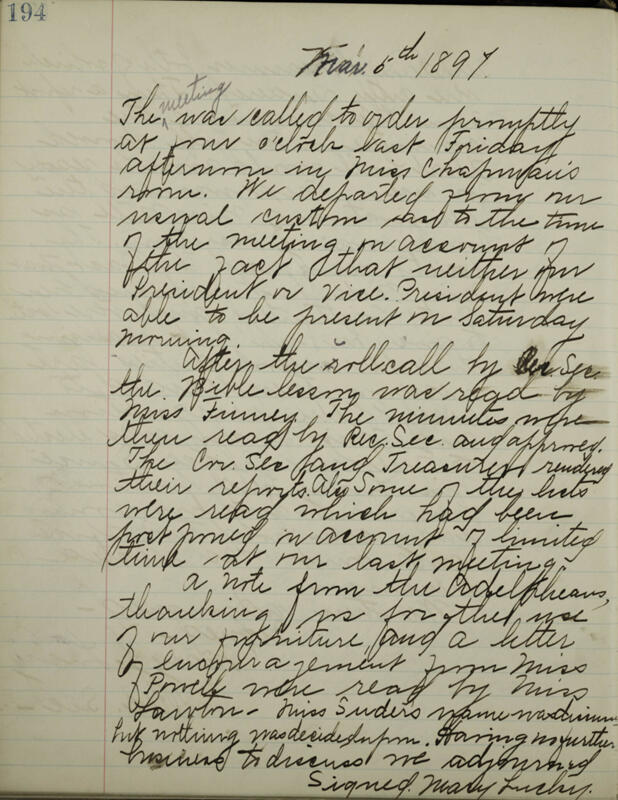 194
Mar. 5th 1897.
The meeting was called to order promptly
at four o'clock last Friday
afternoon in Miss Chapman's
room. We departed from our
usual custom as to the time
of the meeting on account of
the fact that neither our
President or Vice. President were
able to be present on Saturday
morning.
After the rollcall by Rec. Sec.
the Bible lesson was read by
Miss Finney. The minutes were
then read by Rec. Sec. and approved.
The Cor. Sec and Treasurer rendered
their reports. Also Some of the
were read which had been
postponed on account of limited
time at our last meeting.
A note from the Adelpheans,
thanking us for the use
of our furniture and a letter
of encouragement from Miss
Powell were read by Miss
Lawton - Miss Suder's name was
but nothing was decided upon. Having no further
business to discuss we adjourned
Signed. Mary Lucky.